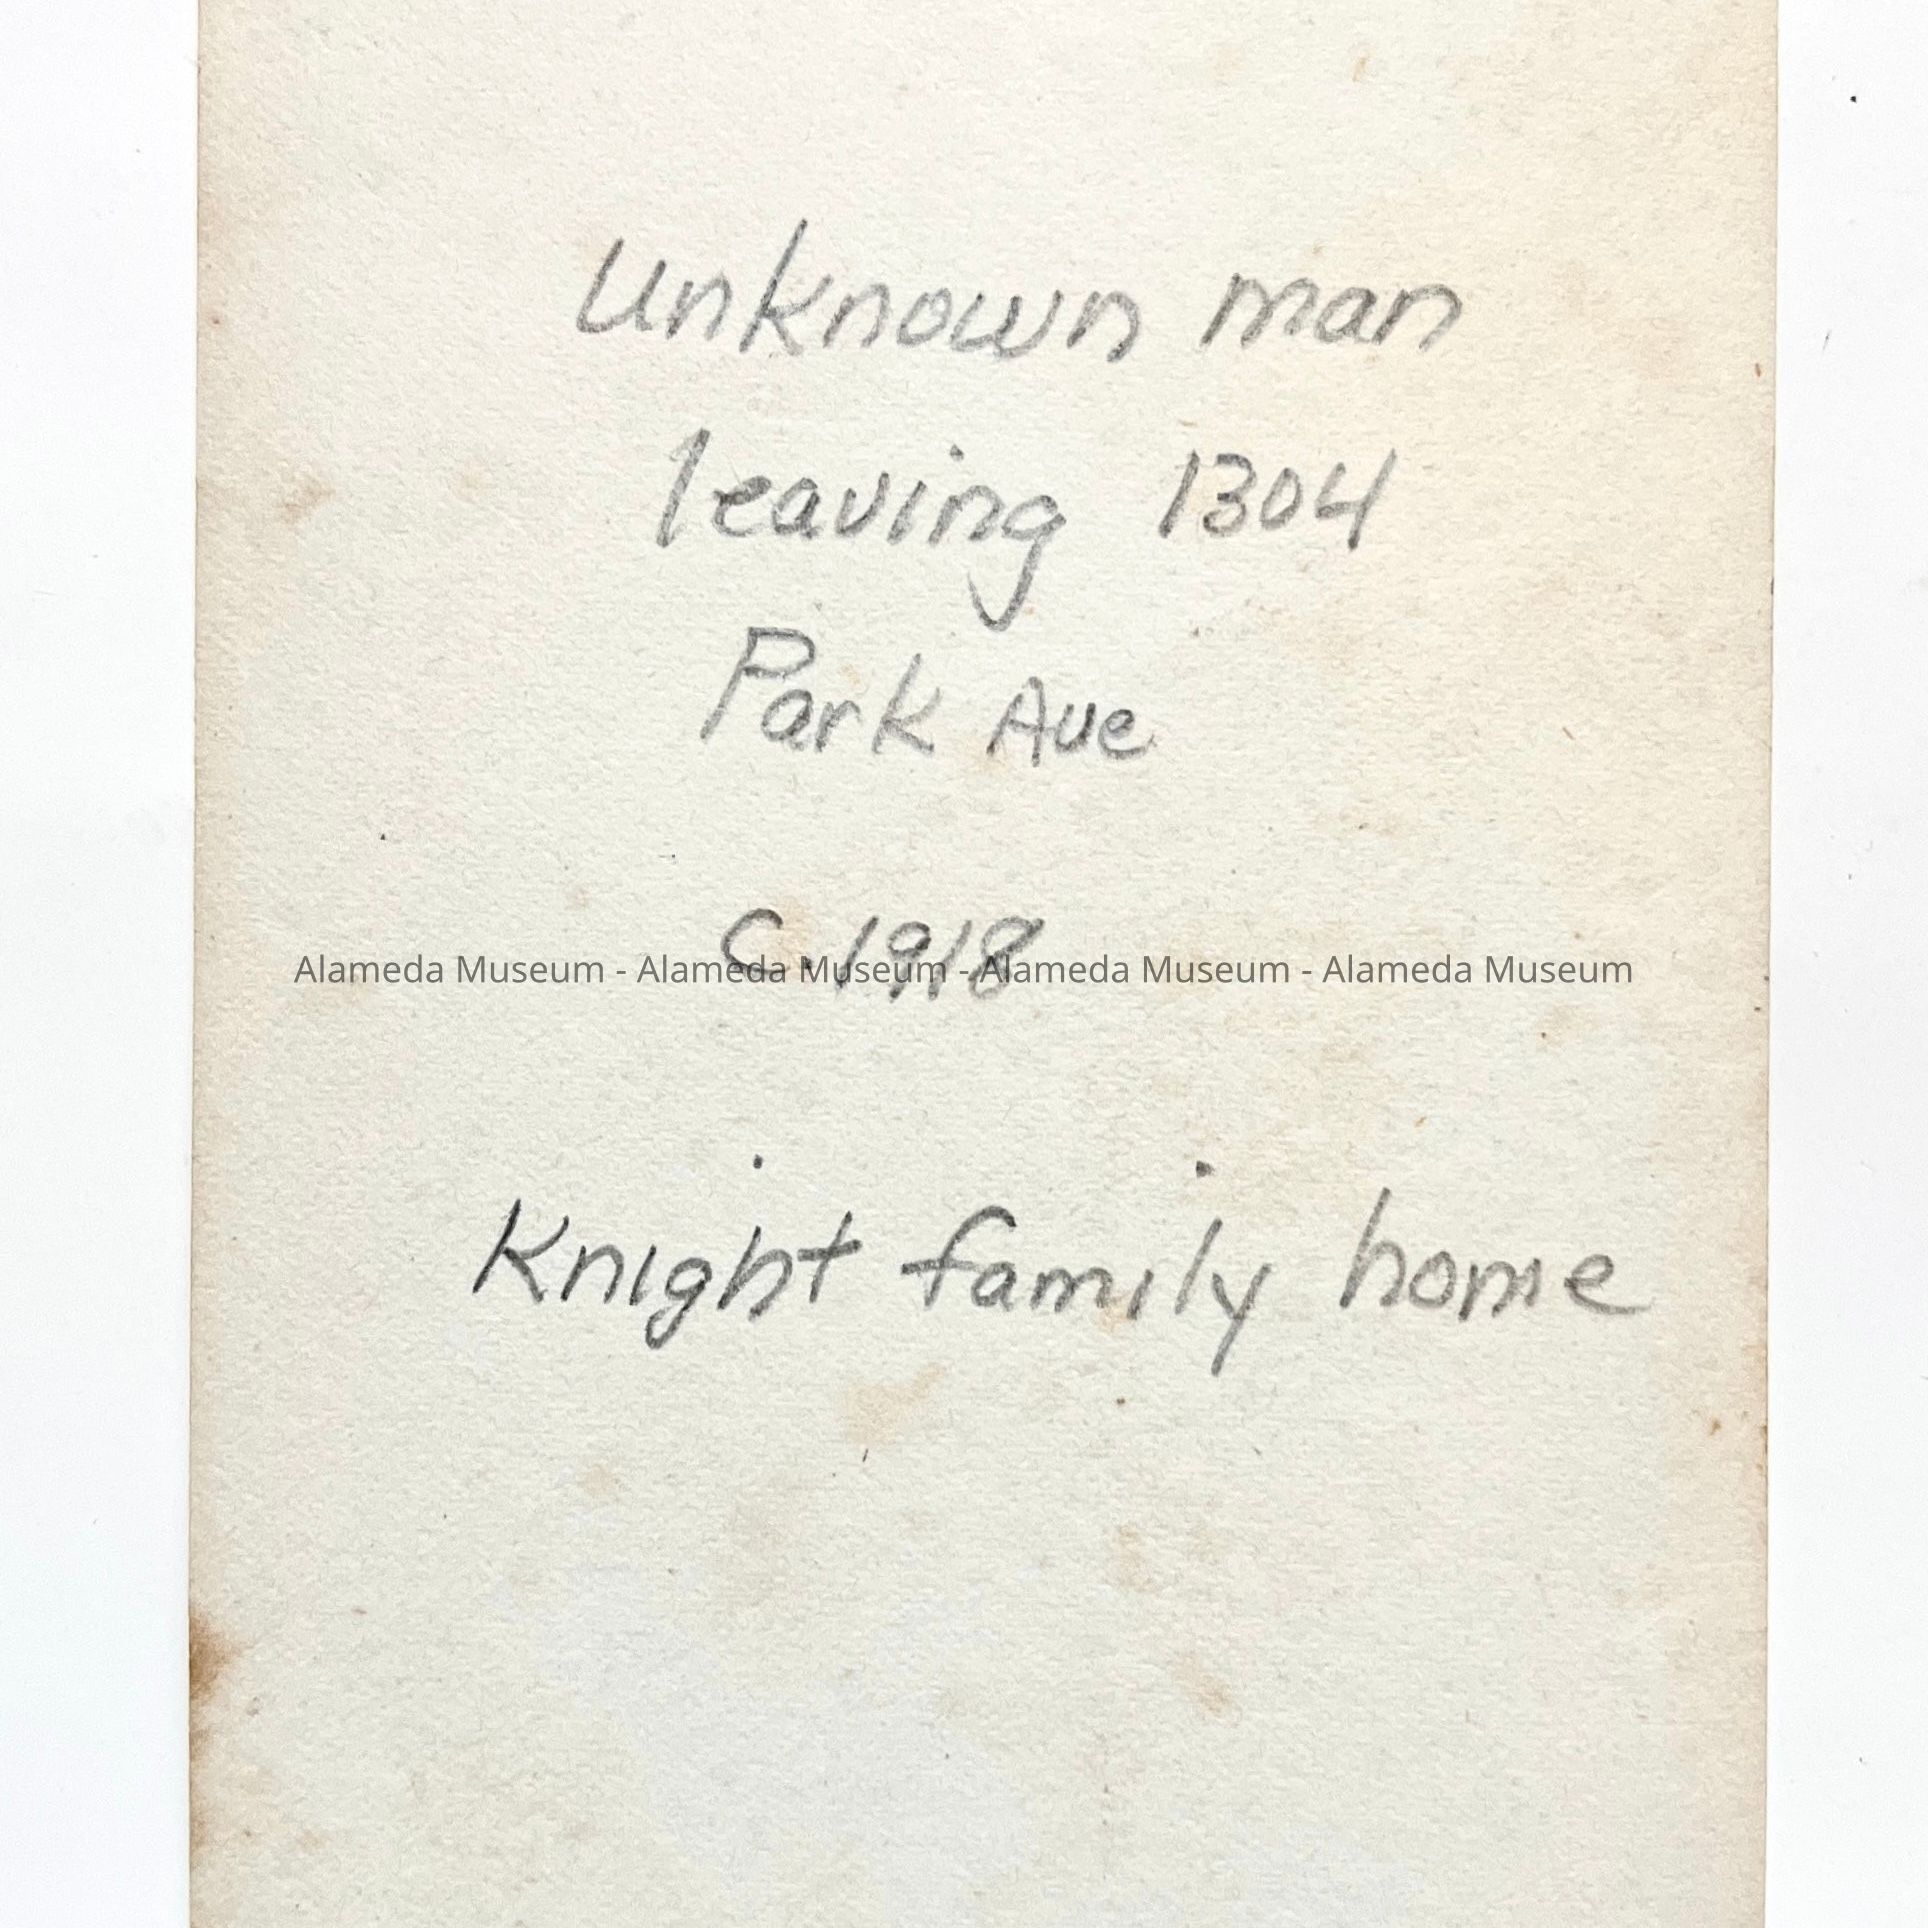 Unknown man
leaving 1304
Park Ave
C.1918
Alameda Museum - Alameda Museum - Alameda Museum - Alameda Museum
Knight family home